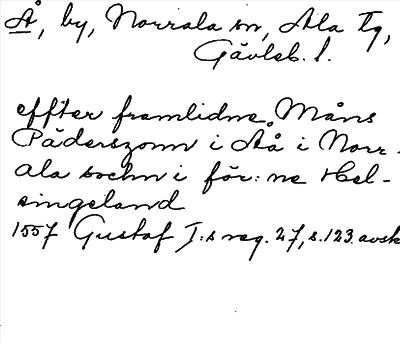 Å, by, Norrala sn, Ala tg,
Gävleb. l.
effter framlidne Måns
Päderszonn i Aå i Norr-
ala sochn i för:ne Hel-
singeland
1557 Gustaf I:s reg. 27, s. 123. avskr